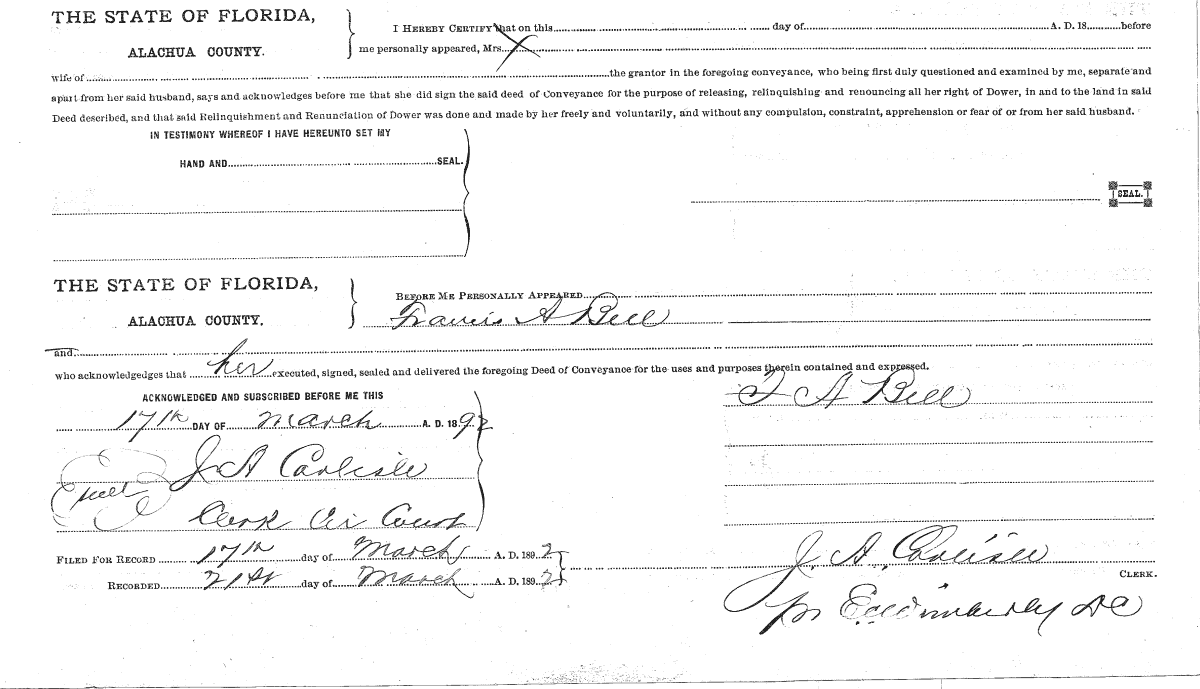 THE STATE OF FLORIDA,
ALACHUA COUNTY.
I HEREBY CERTIFY that on this day of A. D. 18 before
me personally appeared, Mrs.
wife of the grantor in the foregoing conveyance, who being first duly questioned and examined by me, separate and
apart from her said husband, says and acknowledges before me that she did sign the said deed of Conveyance for the purpose of releasing, relinquishing and renouncing all her right of Dower, in and to the land in said
Deed described, and that said Relinquishment and Renunciation of Dower was done and made by her freely and voluntarily, and without any compulsion, constraint, apprehension or fear of or from her said husband.
IN TESTIMONY WHEREOF I HAVE HEREUNTO SET MY
HAND AND SEAL.
SEAL.
THE STATE OF FLORIDA,
ALACHUA COUNTY.
BEFORE ME PERSONALLY APPEARED
Francis A Bell
and
who acknowledgedges that her executed, signed, sealed and delivered the foregoing Deed of Conveyance for the uses and purposes therein contained and expressed.
F A Bell
ACKNOWLEDGED AND SUBSCRIBED BEFORE ME THIS
17th DAY OF March A. D. 1892
J A Carlisle
Seal
Clerk Cir Court
FILED FOR RECORD 17th day of March A. D. 1892
RECORDED 21st day of March A. D. 1892
J. A. Carlisle
CLERK.
pr E Wimberly DC